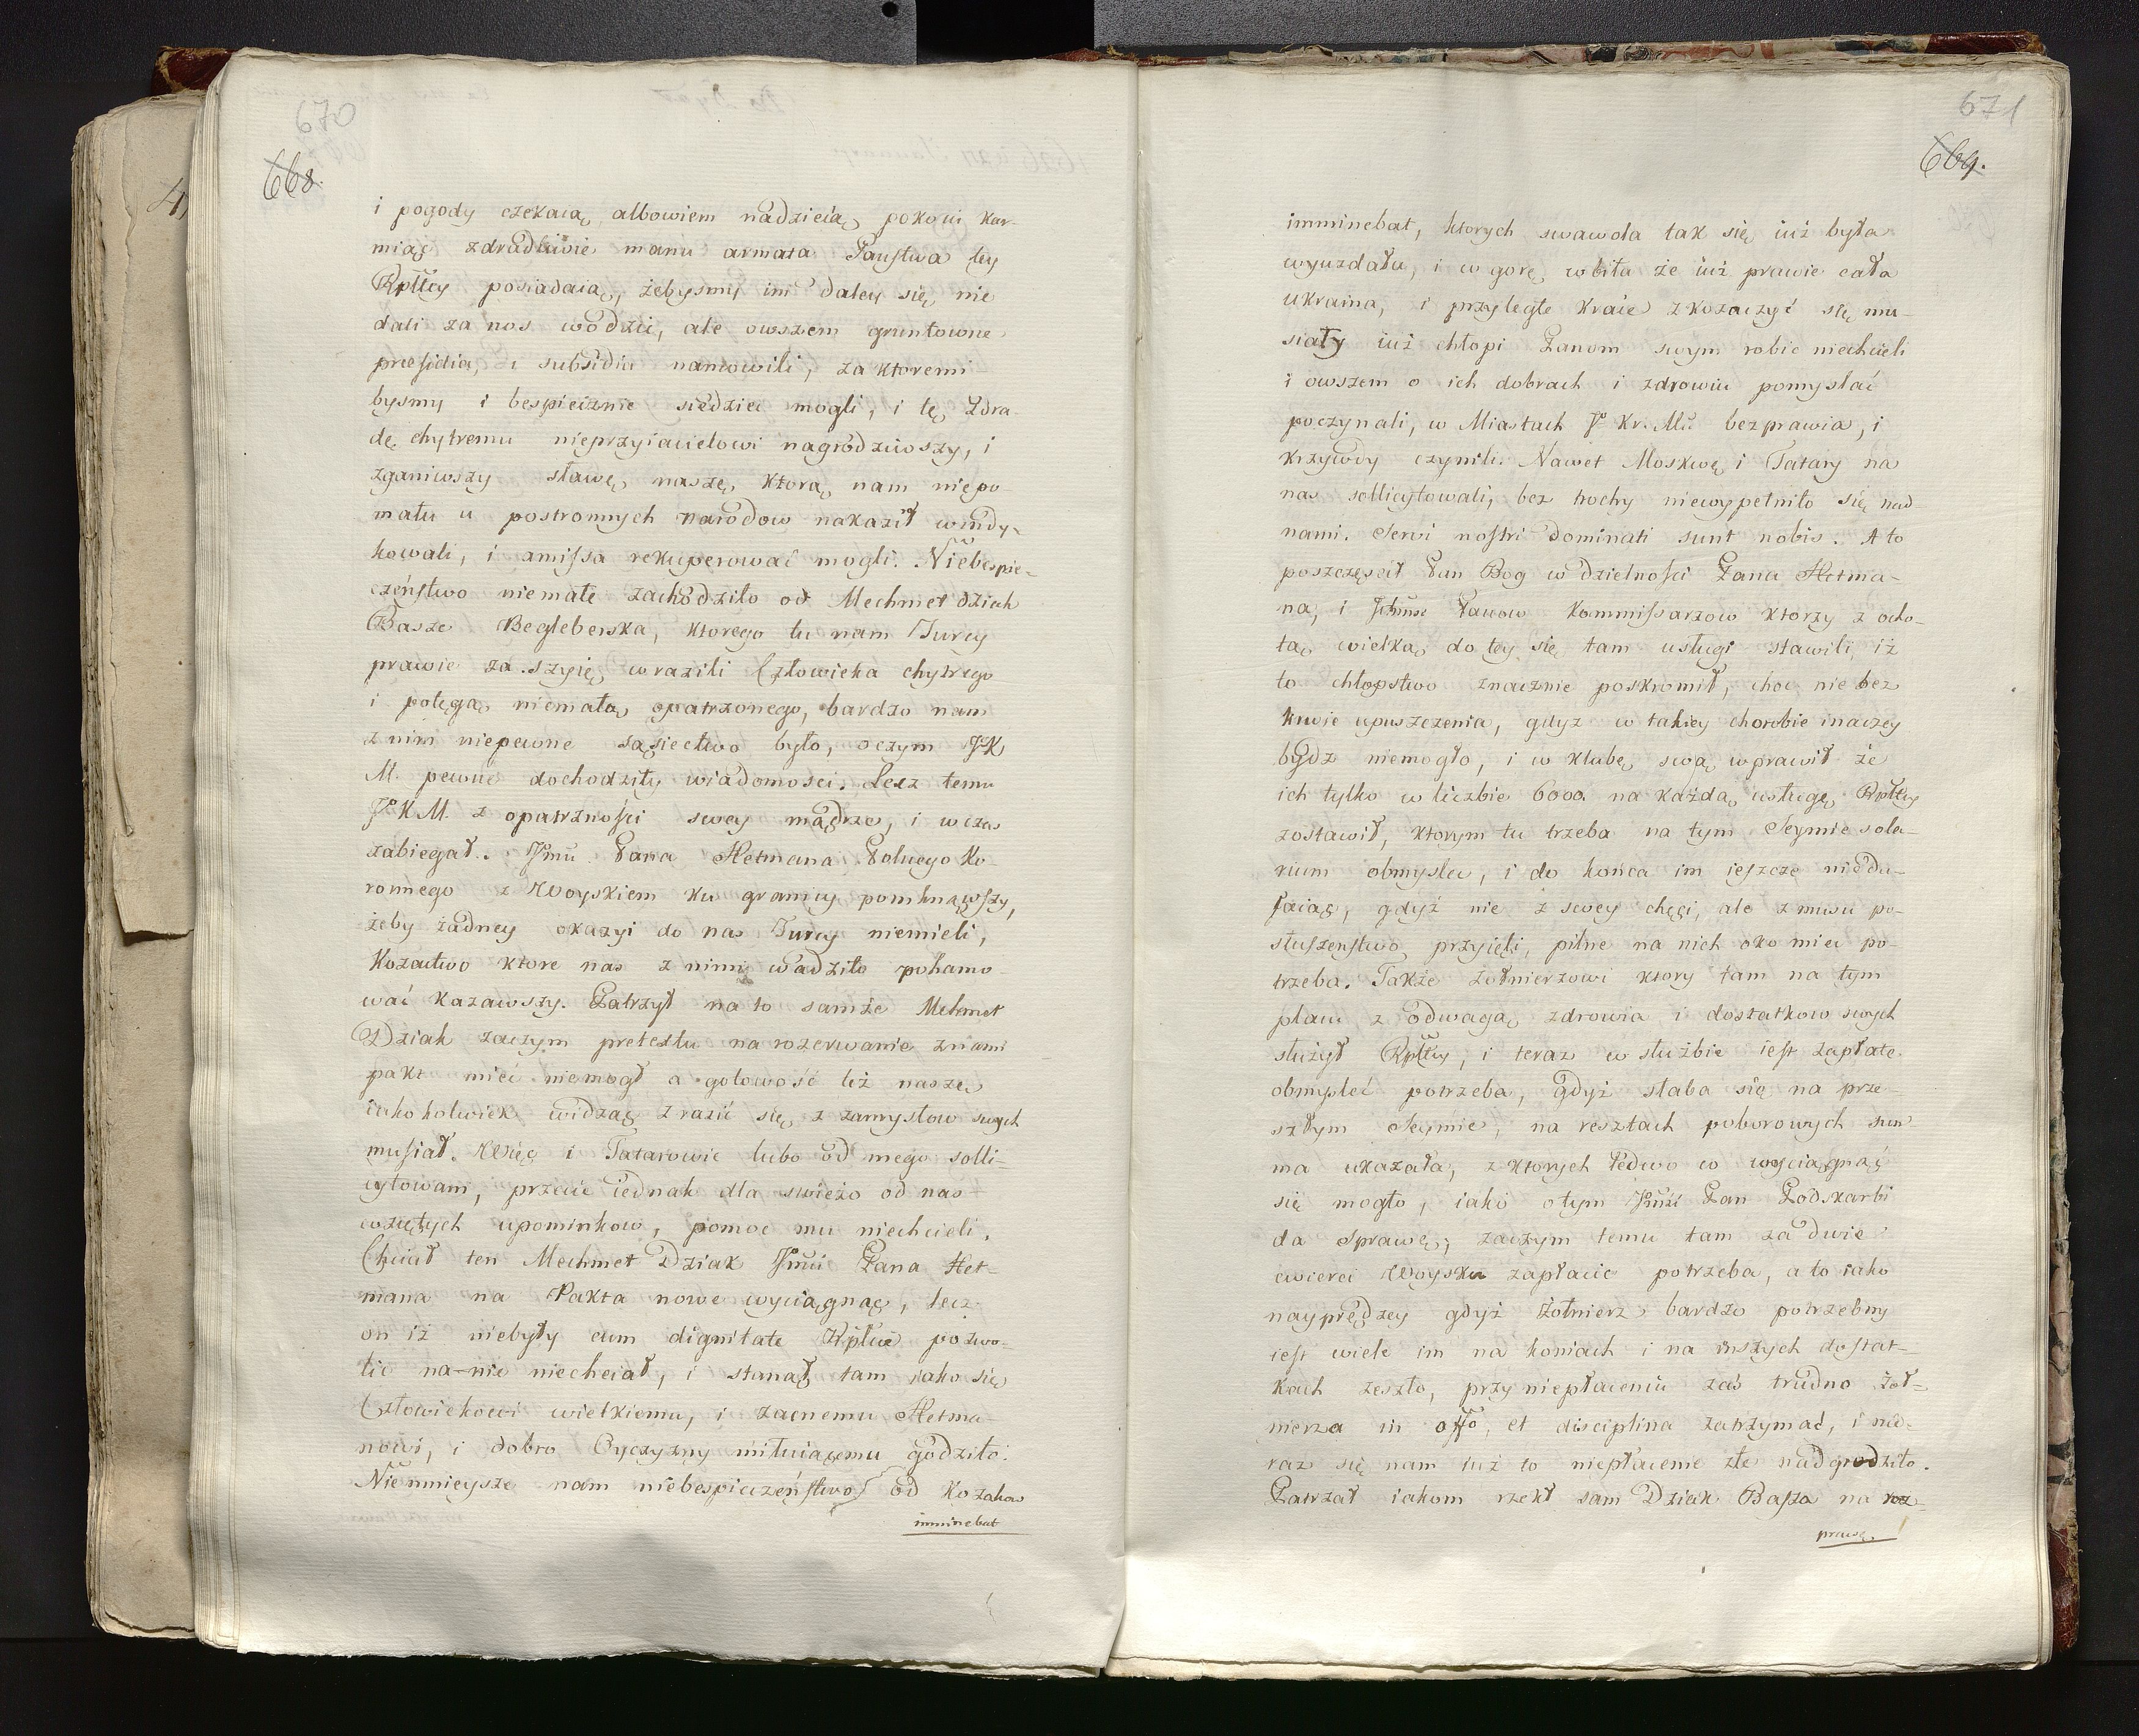 670
668.
i pogody czekaią, albowiem nadzieią pokoiu kar-
miąc zdradliwie manu armata Państwa tey
Rpltey posiadaią, żebysmy im daley się nie
dali za nos wodzić, ale owszem gruntowne
præsidia, i subsidia namowili, za ktoremi
bysmy i bespiecznie siedzieć mogli, i tę zdra-
dę chytremu nieprzyiacielowi nagrodziwszy, i
zganiwszy sławę naszę, ktorą nam niepo-
mału u postronnych narodow nakaził windy-
kowali, i amissa rekuperować mogli. Niebespie-
czeństwo niemałe zachodziło od Mechmet dziak
Basze Beglerberska, ktorego tu nam Turcy
prawie za szyię wrazili Człowieka chytrego
i potęgą niemałą opatrzonego, bardzo nam
z nim niepewne sąsiectwo było, o czym Jo K
M. pewne dochodziły wiadomosci. Lecz temu
Jo K M. z opatrznosci swey mądrze, i wczas
zabiegał. Jmci Pana Hetmana Polnego Ko-
ronnego z Woyskiem ku granicy pomknąwszy,
żeby żadney okazyi do nas Turcy niemieli,
Kozactwo ktore nas z nimi wadziło pohamo-
wać kazawszy. Patrzył na to samże Mehmet
Dziak zaczym pretextu na rozerwanie z nami
pakt mieć niemogł a gotowość też naszę
iakokolwiek widząc zrazić się z zamysłow swych
musiał. Więc i Tatarowie lubo od niego solli-
cytowani, przecie iednak dla swieżo od nas
wziętych upominkow, pomoc mu niechcieli.
Chciał ten Mechmet Dziak Jmci Pana Het-
mana na Pakta nowe wyciągnąć, lecz
on iż niebyły cum dignitate Rpltæ pozwo-
lic na-nie niechciał, i stanął tam iako się
Człowiekowi wielkiemu, i zacnemu Hetma-
nowi, i dobro Oyczyzny miłuiącemu godziło.
Niemnieysze nam niebespieczeństwo od Kozakow
imminebat
671
669.
imminebat, ktorych swawola tak się iuż była
wyuzdała, i w gorę wbiła że iuż prawie cała
Ukraina, i przyległe kraie zkozaczyć się mu-
siały iuż chłopi Panom swym robić niechcieli
i owszem o ich dobrach i zdrowiu pomyslać
poczynali, w Miastach Jo Kr. Mci bezprawia, i
krzywdy czynili. Nawet Moskwę i Tatary na
nas sollicytowali, bez trochy niewypełniło się nad
nami. Servi nostri dominati sunt nobis. A to
poszczęscił Pan Bog w dzielności Pana Hetma-
na, i Ichmć Panow Kommissarzow ktorzy z ocho-
tą wielką do tey się tam usługi stawili, iż
to chłopstwo znacznie poskromił, choc nie bez
krwie upuszczenia, gdyz w takiey chorobie inaczey
bydz niemogło, i w klubę swą wprawił że
ich tylko w liczbie 6000. na każdą usługę Rpltey
zostawił, ktorym tu trzeba na tym Seymie sola-
rium obmyslić, i do końca im ieszcze niedu-
faiąc, gdyż nie z swey chęci, ale z musu po-
słuszenstwo przyięli, pilne na nich oko mieć po-
trzeba. Także żołnierzowi ktory tam na tym
placu z odwagą zdrowia i dostatkow swych
służył Rpltey, i teraz w służbie iest zapłatę
obmysleć potrzeba, gdyż słaba się na prze-
szłym Seymie, na resztach poborowych sum
ma ukazała, z ktorych ledwo co wyciągnąć
się mogło, iako o tym Jmć Pan Podskarbi
da Sprawę; zaczym temu tam za dwie
cwierci Woysku zapłacic potrzeba, a to iako
nayprędzey gdyż żołnierz bardzo potrzebny
iest wiele im na koniach i na inszych dostat-
kach zeszło, przy niepłaceniu zas trudno żoł-
nierza in offo, et disciplina zatrzymać, i nie-
raz się nam iuż to niepłacenie źle nadgrodziło.
Patrzał iakom rzekł sam Dziak Basza na roz-
prawę.